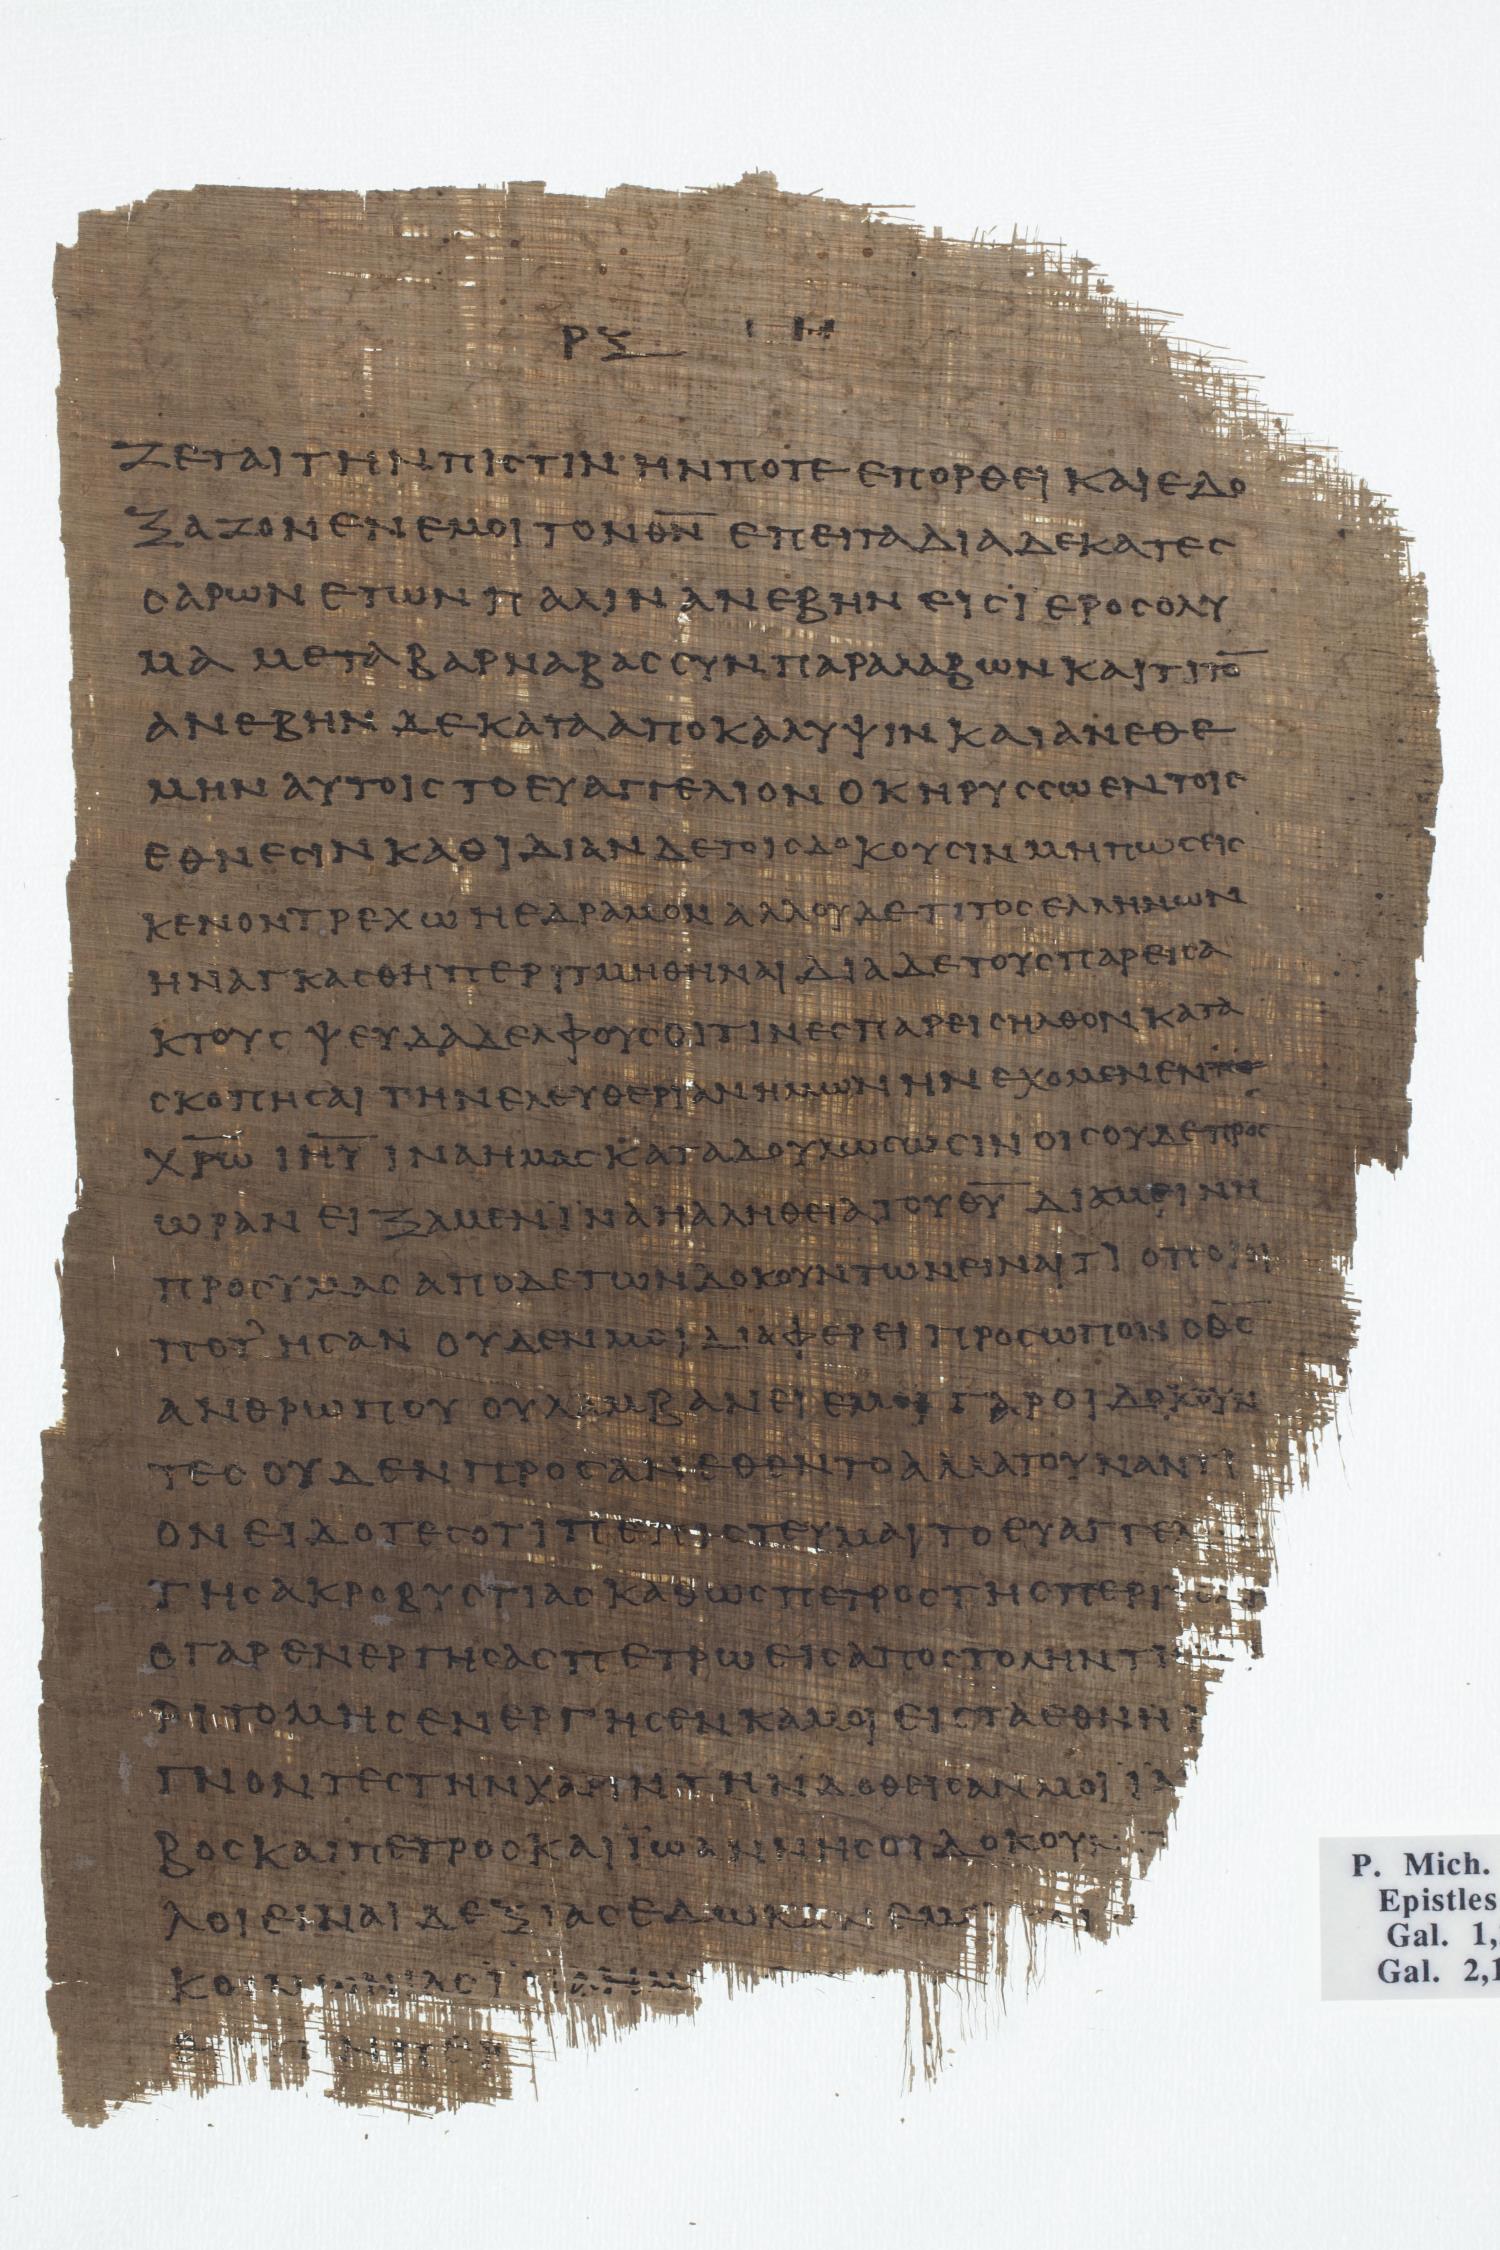 ΡΞ
ΖΕΤΑΙ ΤΗΝ ΠΙСΤΙΝ ΗΝ ΠΟΤΕ ΕΠΟΡΘΕΙ ΚΑΙ ΕΔΟ
ΞΑΖΟΝ ΕΝ ΕΜΟΙ ΤΟΝ Θ̅Ν̅ ΕΠΕΙΤΑ ΔΙΑ ΔΕΚΑΤΕС
СΑΡωΝ ΕΤωΝ ΠΑΛΙΝ ΑΝΕΒΗΝ ΕΙС ΙΕΡΟСΟΛΥ
ΜΑ ΜΕΤΑ ΒΑΡΝΑΒΑС СΥΝΠΑΡΑΛΑΒωΝ ΚΑΙ ΤΙΤΟ̅
ΑΝΕΒΗΝ ΔΕ ΚΑΤΑ ΑΠΟΚΑΛΥΨΙΝ ΚΑΙ ΑΝΕΘΕ
ΜΗΝ ΑΥΤΟΙС ΤΟ ΕΥΑΓΓΕΛΙΟΝ Ο ΚΗΡΥССω ΕΝ ΤΟΙС
ΕΘΝΕСΙΝ ΚΑΘ ΙΔΙΑΝ ΔΕ ΤΟΙС ΔΟΚΟΥСΙΝ ΜΗ ΠωС ΕΙС
ΚΕΝΟΝ ΤΡΕΧω Η ΕΔΡΑΜΟΝ ΑΛΛ ΟΥΔΕ ΤΙΤΟС ΕΛΛΗΝ ωΝ
ΗΝΑΓΚΑСΘΗ ΠΕΡΙΤΜΗΘΗΝΑΙ ΔΙΑ ΔΕ ΤΟΥС ΠΑΡΕΙСΑ
ΚΤΟΥС ΨΕΥΔΑΔΕΛΦΟΥС ΟΙΤΙΝΕС ΠΑΡΕΙСΗΛΘΟΝ ΚΑΤΑ
СΚΟΠΗСΑΙ ΤΗΝ ΕΛΕΥΘΕΡΙΑΝ ΗΜωΝ ΗΝ ΕΧΟΜΕΝ ΕΝ
Χ̅Ρ̅ω̅ Ι̅Η̅Υ̅ ΙΝΑ ΗΜΑС ΚΑΤΑΔΟΥΛωСωСΙΝ ΟΙС ΟΥΔΕ ΠΡΟС
ωΡΑΝ ΕΙΞΑΜΕΝ ΙΝΑ Η ΑΛΗΘΕΙΑ ΤΟΥ Θ̅Υ̅ ΔΙΑΜΕΙΝΗ
ΠΡΟС ΥΜΑС ΑΠΟ ΔΕ ΤωΝ ΔΟΚΟΥΝΤωΝ ΕΙΝΑΙ ΤΙ ΟΠΟΙΟΙ
ΠΟΤ’ ΗСΑΝ ΟΥΔΕΝ ΜΟΙ ΔΙΑΦΕΡΕΙ ΠΡΟСωΠΟΝ Ο Θ̅С̅
ΑΝΘΡωΠΟΥ ΟΥ ΛΑΜΒΑΝΕΙ ΕΜΟΙ ΓΑΡ ΟΙ ΔΟΚΟΥΝ
ΤΕС ΟΥΔΕΝ ΠΡΟСΑΝΕΘΕΝΤΟ ΑΛΛΑ ΤΟΥΝΑΝΤΙ
ΟΝ ΕΙΔΟΤΕС ΟΤΙ ΠΕΠΙСΤΕΥΜΑΙ ΤΟ ΕΥΑΓΓΕΛ
ΤΗС ΑΚΡΟΒΥСΤΙΑС ΚΑΘωС ΠΕΤΡΟС ΤΗС ΠΕΡΙ
Ο ΓΑΡ ΕΝΕΡΓΗСΑС ΠΕΤΡω ΕΙС ΑΠΟСΤΟΛΗΝ
ΡΙΤΟΜΗС ΕΝΕΡΓΗСΕΝ ΚΑΜΟΙ ΕΙС ΤΑ ΕΘΝΗ
ΓΝΟΝΤΕС ΤΗΝ ΧΑΡΙΝ ΤΗΝ ΔΟΘΕΙСΑΝ ΜΟΙ ΙΑ
ΒΟС ΚΑΙ ΠΕΤΡΟС ΚΑΙ ΙωΑΝΝΗС ΟΙ ΔΟΚΟΥΝ
ΛΟΙ ΕΙΝΑΙ ΔΕΞΙΑС ΕΔωΚΑΝ ΕΜΟΙ
ΚΟΙΝωΝΙΑС
P. Mich.
Epistles
Gal. 1,
Gal. 2,1